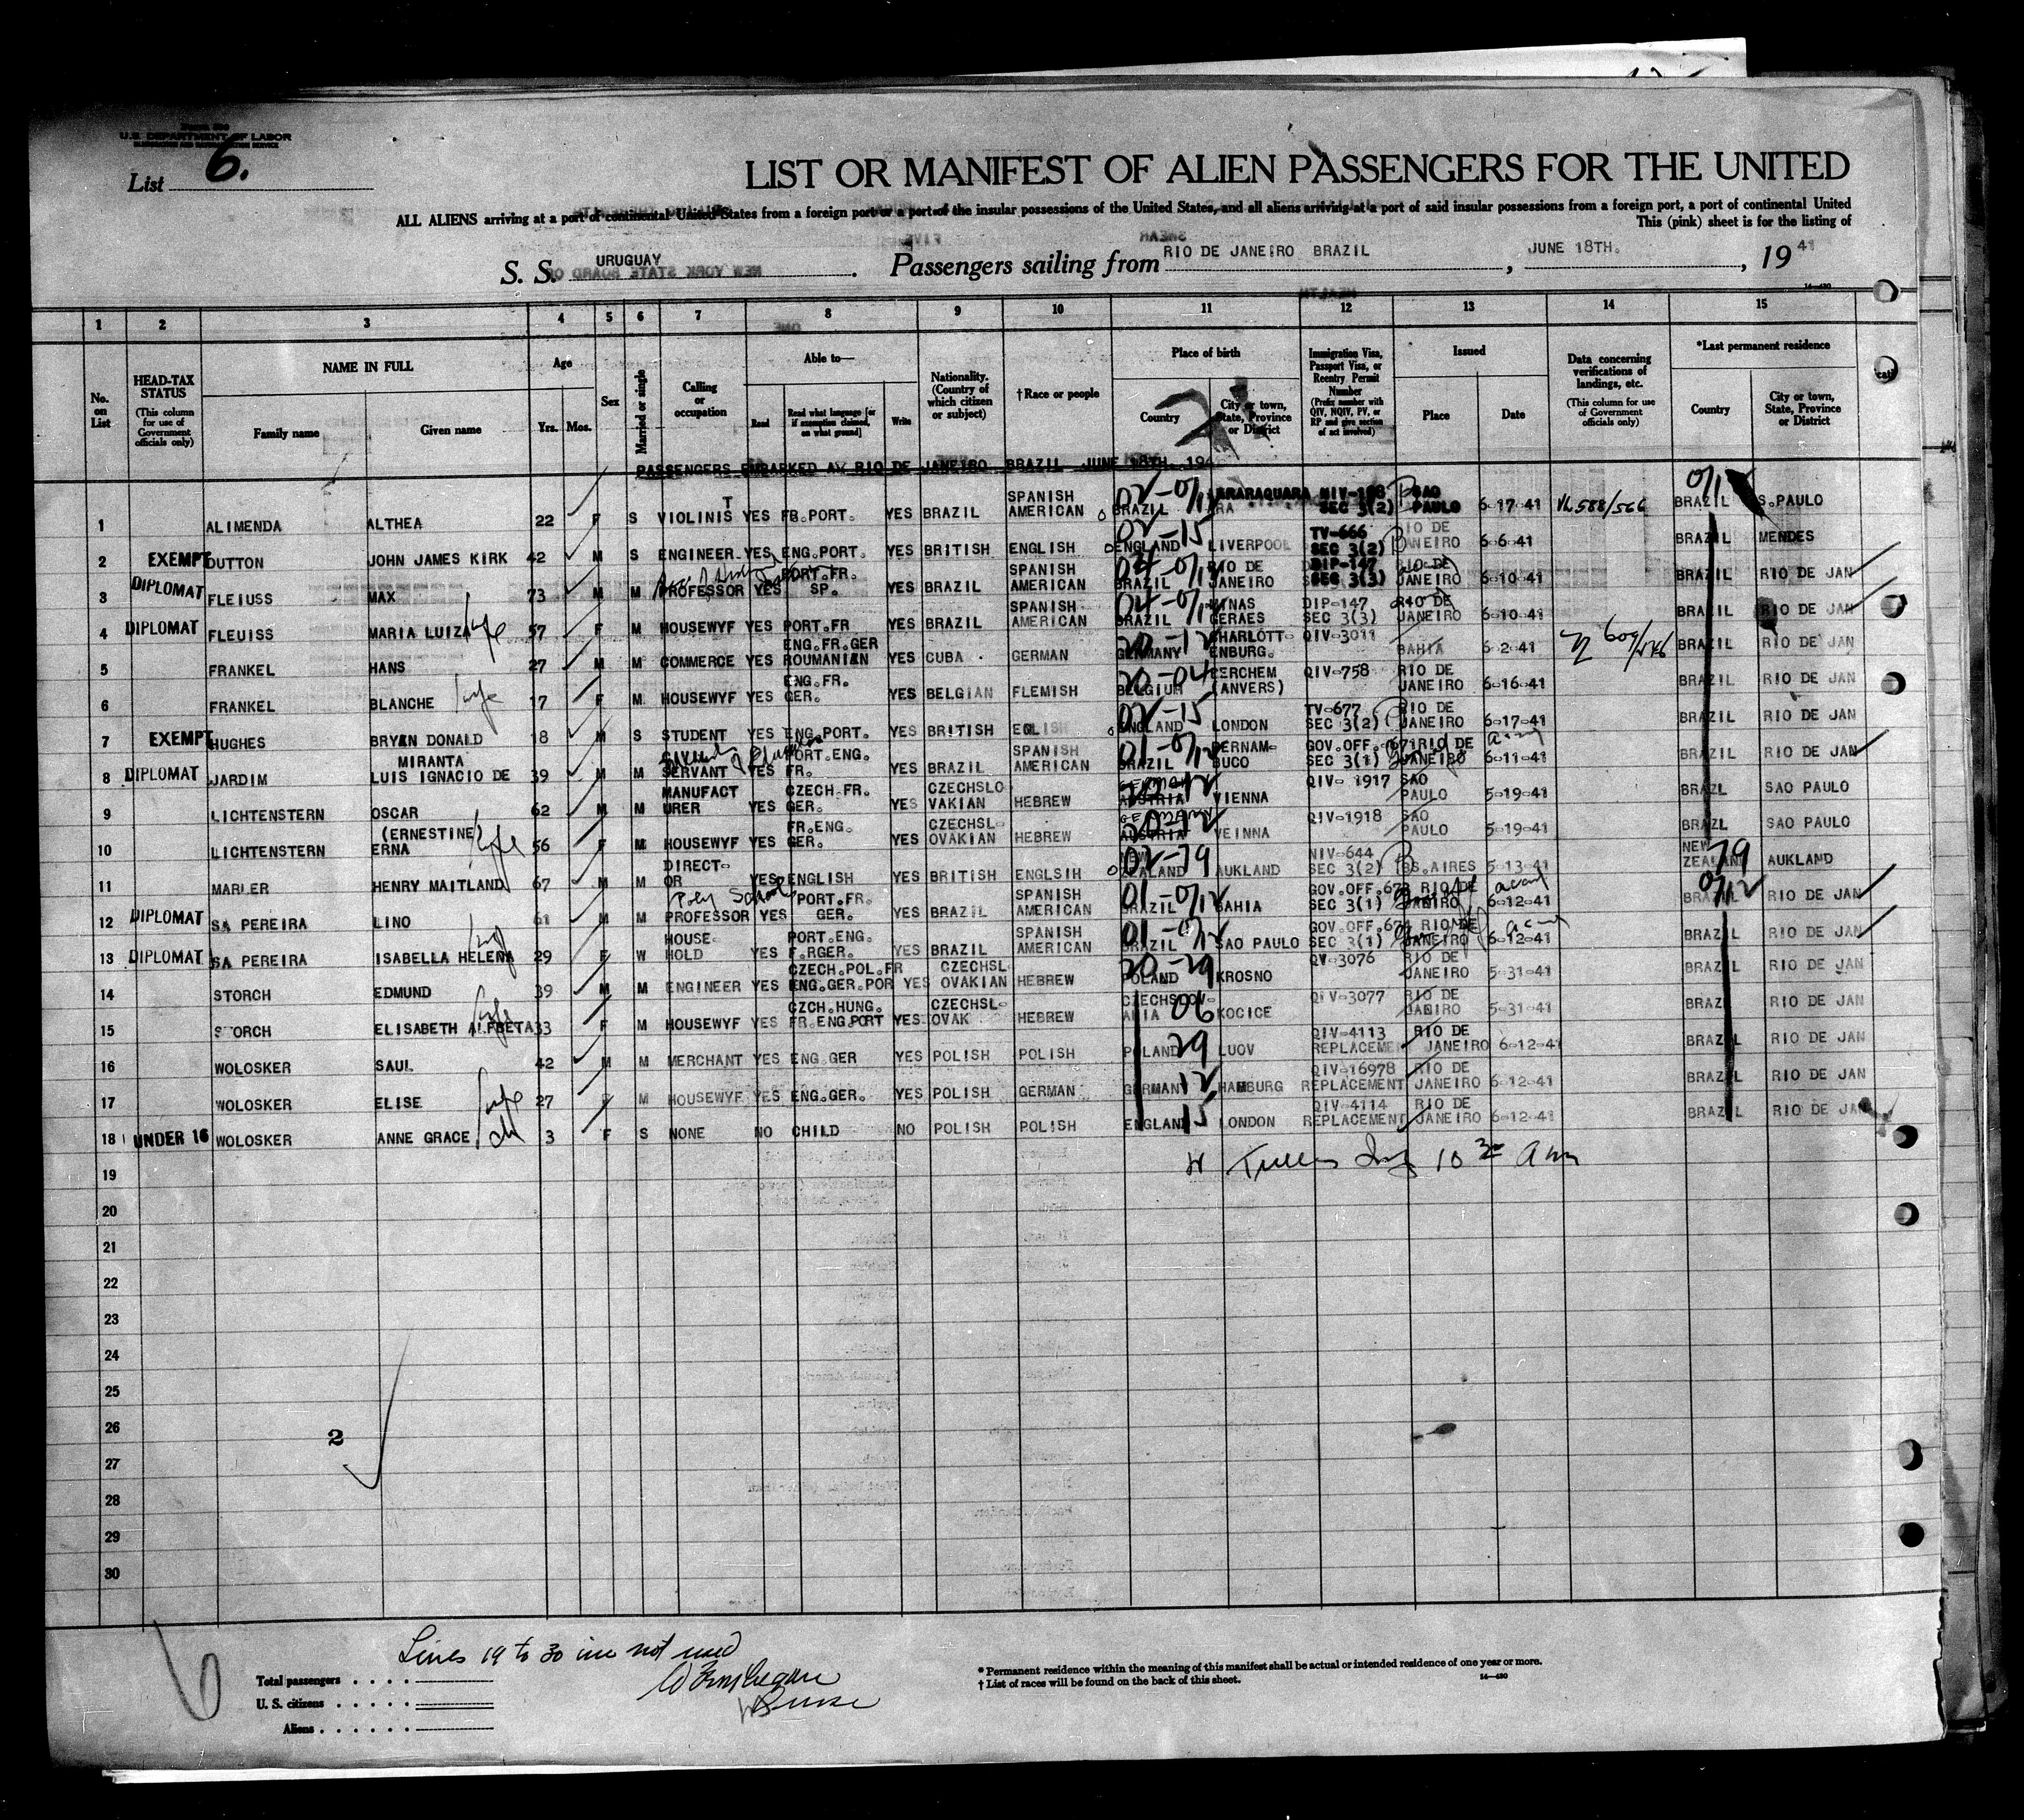 U.S. DEPARTMENT OF LABOR
List 6.
LIST OR MANIFEST OF ALIEN PASSENGERS FOR THE UNITED
ALL ALIENS arriving at a port of continental United States from a foreign port or a port of the insular possessions of the United States, and all aliens arriving at a port of said insular possessions from a foreign port, a port of continental United
This (pink) sheet is for the listing of
S. S. URUGUAY. Passengers sailing from RIO DE JANEIRO BRAZIL, JUNE 18TH., 1941
1 2 3 4 5 6 7 8 9 10 11 12 13 14 15
No. on List
HEAD-TAX STATUS (This column for use of Government officials only)
NAME IN FULL Family name Given name
Age Yrs. Mos.
Sex
Married or single
Calling or occupation
Able to— Read Read what language [or if exemption claimed, on what ground] Write
Nationality. (Country of which citizen or subject)
†Race or people
Place of birth Country City or town, State, Province or District
Immigration Visa, Passport Visa, or Reentry Permit Number (Prefix number with QIV, NQIV, PV, or RP and give section of act involved)
Issued Place Date
Data concerning verifications of landings, etc. (This column for use of Government officials only)
*Last permanent residence Country City or town, State, Province or District
PASSENGERS EMBARKED AT RIO DE JANEIRO BRAZIL JUNE 18TH. 194
1 ALIMENDA ALTHEA 22 F S VIOLINIST YES FR.PORT. YES BRAZIL SPANISH AMERICAN 02-0/1 BRAZIL ARARAQUARA NIV-188 SEC 3(2) SAO PAULO 6-17-41 VL588/566 BRAZIL S.PAULO
2 EXEMPT DUTTON JOHN JAMES KIRK 42 M S ENGINEER YES ENG.PORT. YES BRITISH ENGLISH 02-15 ENGLAND LIVERPOOL TV-666 SEC 3(2) RIO DE JANEIRO 6-6-41 BRAZIL MENDES
3 DIPLOMAT FLEIUSS MAX 73 M M PROFESSOR YES PORT.FR. SP. YES BRAZIL SPANISH AMERICAN BRAZIL RIO DE JANEIRO DIP-147 SEC 3(3) RIO DE JANEIRO 6-10-41 BRAZIL RIO DE JAN
4 DIPLOMAT FLEUISS MARIA LUIZA wife 57 F M HOUSEWYF YES PORT.FR YES BRAZIL SPANISH AMERICAN BRAZIL MINAS GERAES DIP-147 SEC 3(3) RIO DE JANEIRO 6-10-41 BRAZIL RIO DE JAN
5 FRANKEL HANS 27 M M COMMERCE YES ENG.FR.GER ROUMANIAN YES CUBA GERMAN 20-12 GERMANY CHARLOTT-ENBURG. QIV-3011 BAHIA 6-2-41 BRAZIL RIO DE JAN
6 FRANKEL BLANCHE wife 17 F M HOUSEWYF YES ENG.FR. GER. YES BELGIAN FLEMISH 20-04 BELGIUM BERCHEM (ANVERS) QIV-758 RIO DE JANEIRO 6-16-41 BRAZIL RIO DE JAN
7 EXEMPT HUGHES BRYAN DONALD 18 M S STUDENT YES ENG.PORT. YES BRITISH EGLISH 02-15 ENGLAND LONDON TV-677 SEC 3(2) RIO DE JANEIRO 6-17-41 BRAZIL RIO DE JAN
8 DIPLOMAT JARDIM MIRANTA LUIS IGNACIO DE 39 M M SERVANT YES PORT.ENG. FR. YES BRAZIL SPANISH AMERICAN 01-0/12 BRAZIL PERNAM-BUCO GOV.OFF.671 SEC 3(1) RIO DE JANEIRO 6-11-41 BRAZIL RIO DE JAN
9 LICHTENSTERN OSCAR 62 M M MANUFACT URER YES CZECH.FR. GER. YES CZECHSLO VAKIAN HEBREW AUSTRIA VIENNA QIV-1917 SAO PAULO 5-19-41 BRAZL SAO PAULO
10 LICHTENSTERN (ERNESTINE) ERNA wife 56 F M HOUSEWYF YES FR.ENG. GER. YES CZECHSL-OVAKIAN HEBREW GERMANY AUSTRIA VEINNA QIV-1918 SAO PAULO 5-19-41 BRAZL SAO PAULO
11 MARLER HENRY MAITLAND 67 M M DIRECT-OR YES ENGLISH YES BRITISH ENGLSIH 02-79 NEW ZEALAND AUKLAND NIV-644 SEC 3(2) BS.AIRES 5-13-41 NEW ZEALAND 79 AUKLAND
12 DIPLOMAT SA PEREIRA LINO 61 M M PROFESSOR YES PORT.FR. GER. YES BRAZIL SPANISH AMERICAN 01-0/12 BRAZIL BAHIA GOV.OFF.673 SEC 3(1) RIO DE JANEIRO 6-12-41 BRAZIL RIO DE JAN
13 DIPLOMAT SA PEREIRA ISABELLA HELENA 29 F W HOUSE-HOLD YES PORT.ENG. F.RGER. YES BRAZIL SPANISH AMERICAN 01-0/12 BRAZIL SAO PAULO GOV.OFF.674 SEC 3(1) RIO DE JANEIRO 6-12-41 BRAZIL RIO DE JAN
14 STORCH EDMUND 39 M M ENGINEER YES CZECH.POL.FR ENG.GER.POR YES CZECHSL OVAKIAN HEBREW 20-29 POLAND KROSNO QV-3076 RIO DE JANEIRO 5-31-41 BRAZIL RIO DE JAN
15 STORCH ELISABETH ALFBETA wife 33 F M HOUSEWYF YES CZCH.HUNG. FR.ENG.PORT YES CZECHSL-OVAK HEBREW CZECHSLOV-AKIA 06 KOCICE QIV-3077 RIO DE JANEIRO 5-31-41 BRAZIL RIO DE JAN
16 WOLOSKER SAUL 42 M M MERCHANT YES ENG.GER YES POLISH POLISH POLAND 29 LUOV QIV-4113 REPLACEMENT RIO DE JANEIRO 6-12-41 BRAZIL RIO DE JAN
17 WOLOSKER ELISE wife 27 F M HOUSEWYF YES ENG.GER. YES POLISH GERMAN GERMANY 12 HAMBURG QIV-16978 REPLACEMENT RIO DE JANEIRO 6-12-41 BRAZIL RIO DE JAN
18 UNDER 16 WOLOSKER ANNE GRACE ch 3 F S NONE NO CHILD NO POLISH POLISH ENGLAND 15 LONDON QIV-4114 REPLACEMENT RIO DE JANEIRO 6-12-41 BRAZIL RIO DE JAN
19
20
21
22
23
24
25
26
27
28
29
30
2
6
Lines 19 to 30 inc not used
Total passengers
U. S. citizens
Aliens
* Permanent residence within the meaning of this manifest shall be actual or intended residence of one year or more.
† List of races will be found on the back of this sheet.
14—430